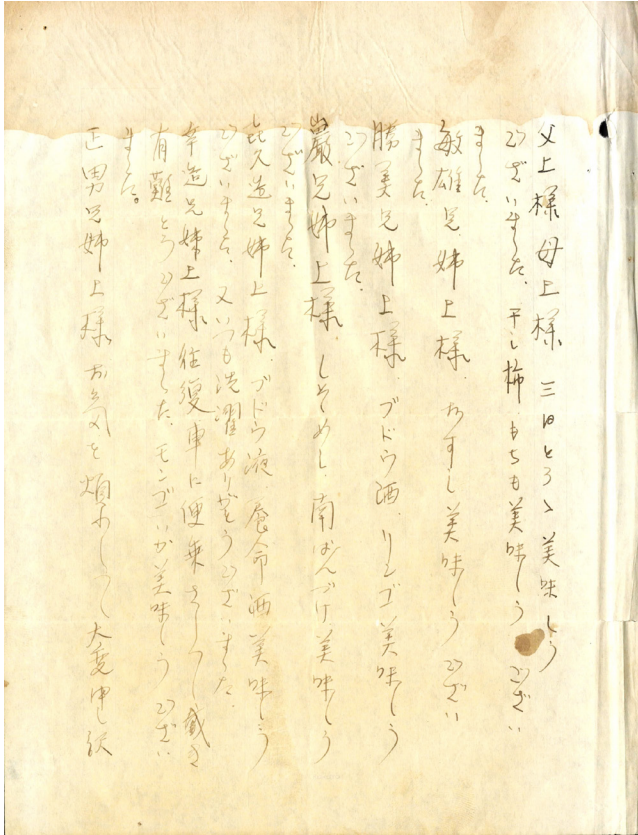 父上様母上様 三日とろゝ美味しう
ございました。干し柿、もちも美味しうござい
ました。
敏雄兄姉上様、おすし美味しうござい
ました。
勝美兄姉上様、ブドウ酒、リンゴ美味しう
ございました。
巌兄姉上様、しそめし、南ばんづけ美味しう
ございました。
喜久造兄姉上様、ブドウ液、養命酒美味しう
ございました。又いつも洗濯ありがとうございました。
幸造兄姉上様、往復車に便乗さしつし戴き
有難とうございました。モンゴいか美味しうござい
ました。
正男兄姉上様、お気を煩わしつし大変申し訳